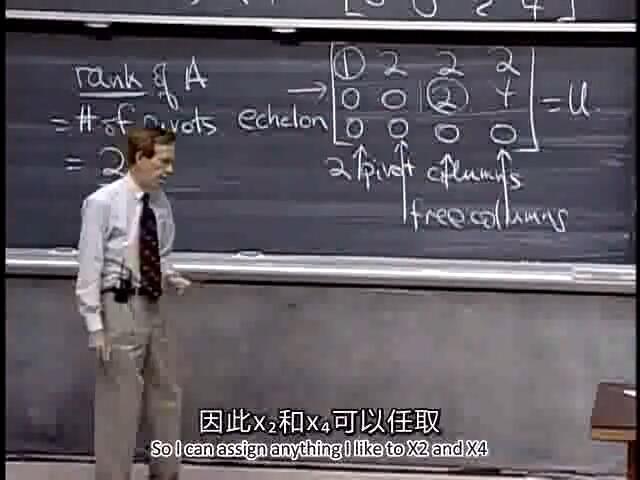 rank of A
= # of pivots
= 2
echelon
→ 1 2 2 2
0 0 2 4 = U
0 0 0 0
2 pivot columns
free columns
因此x₂和x₄可以任取
So I can assign anything I like to X2 and X4